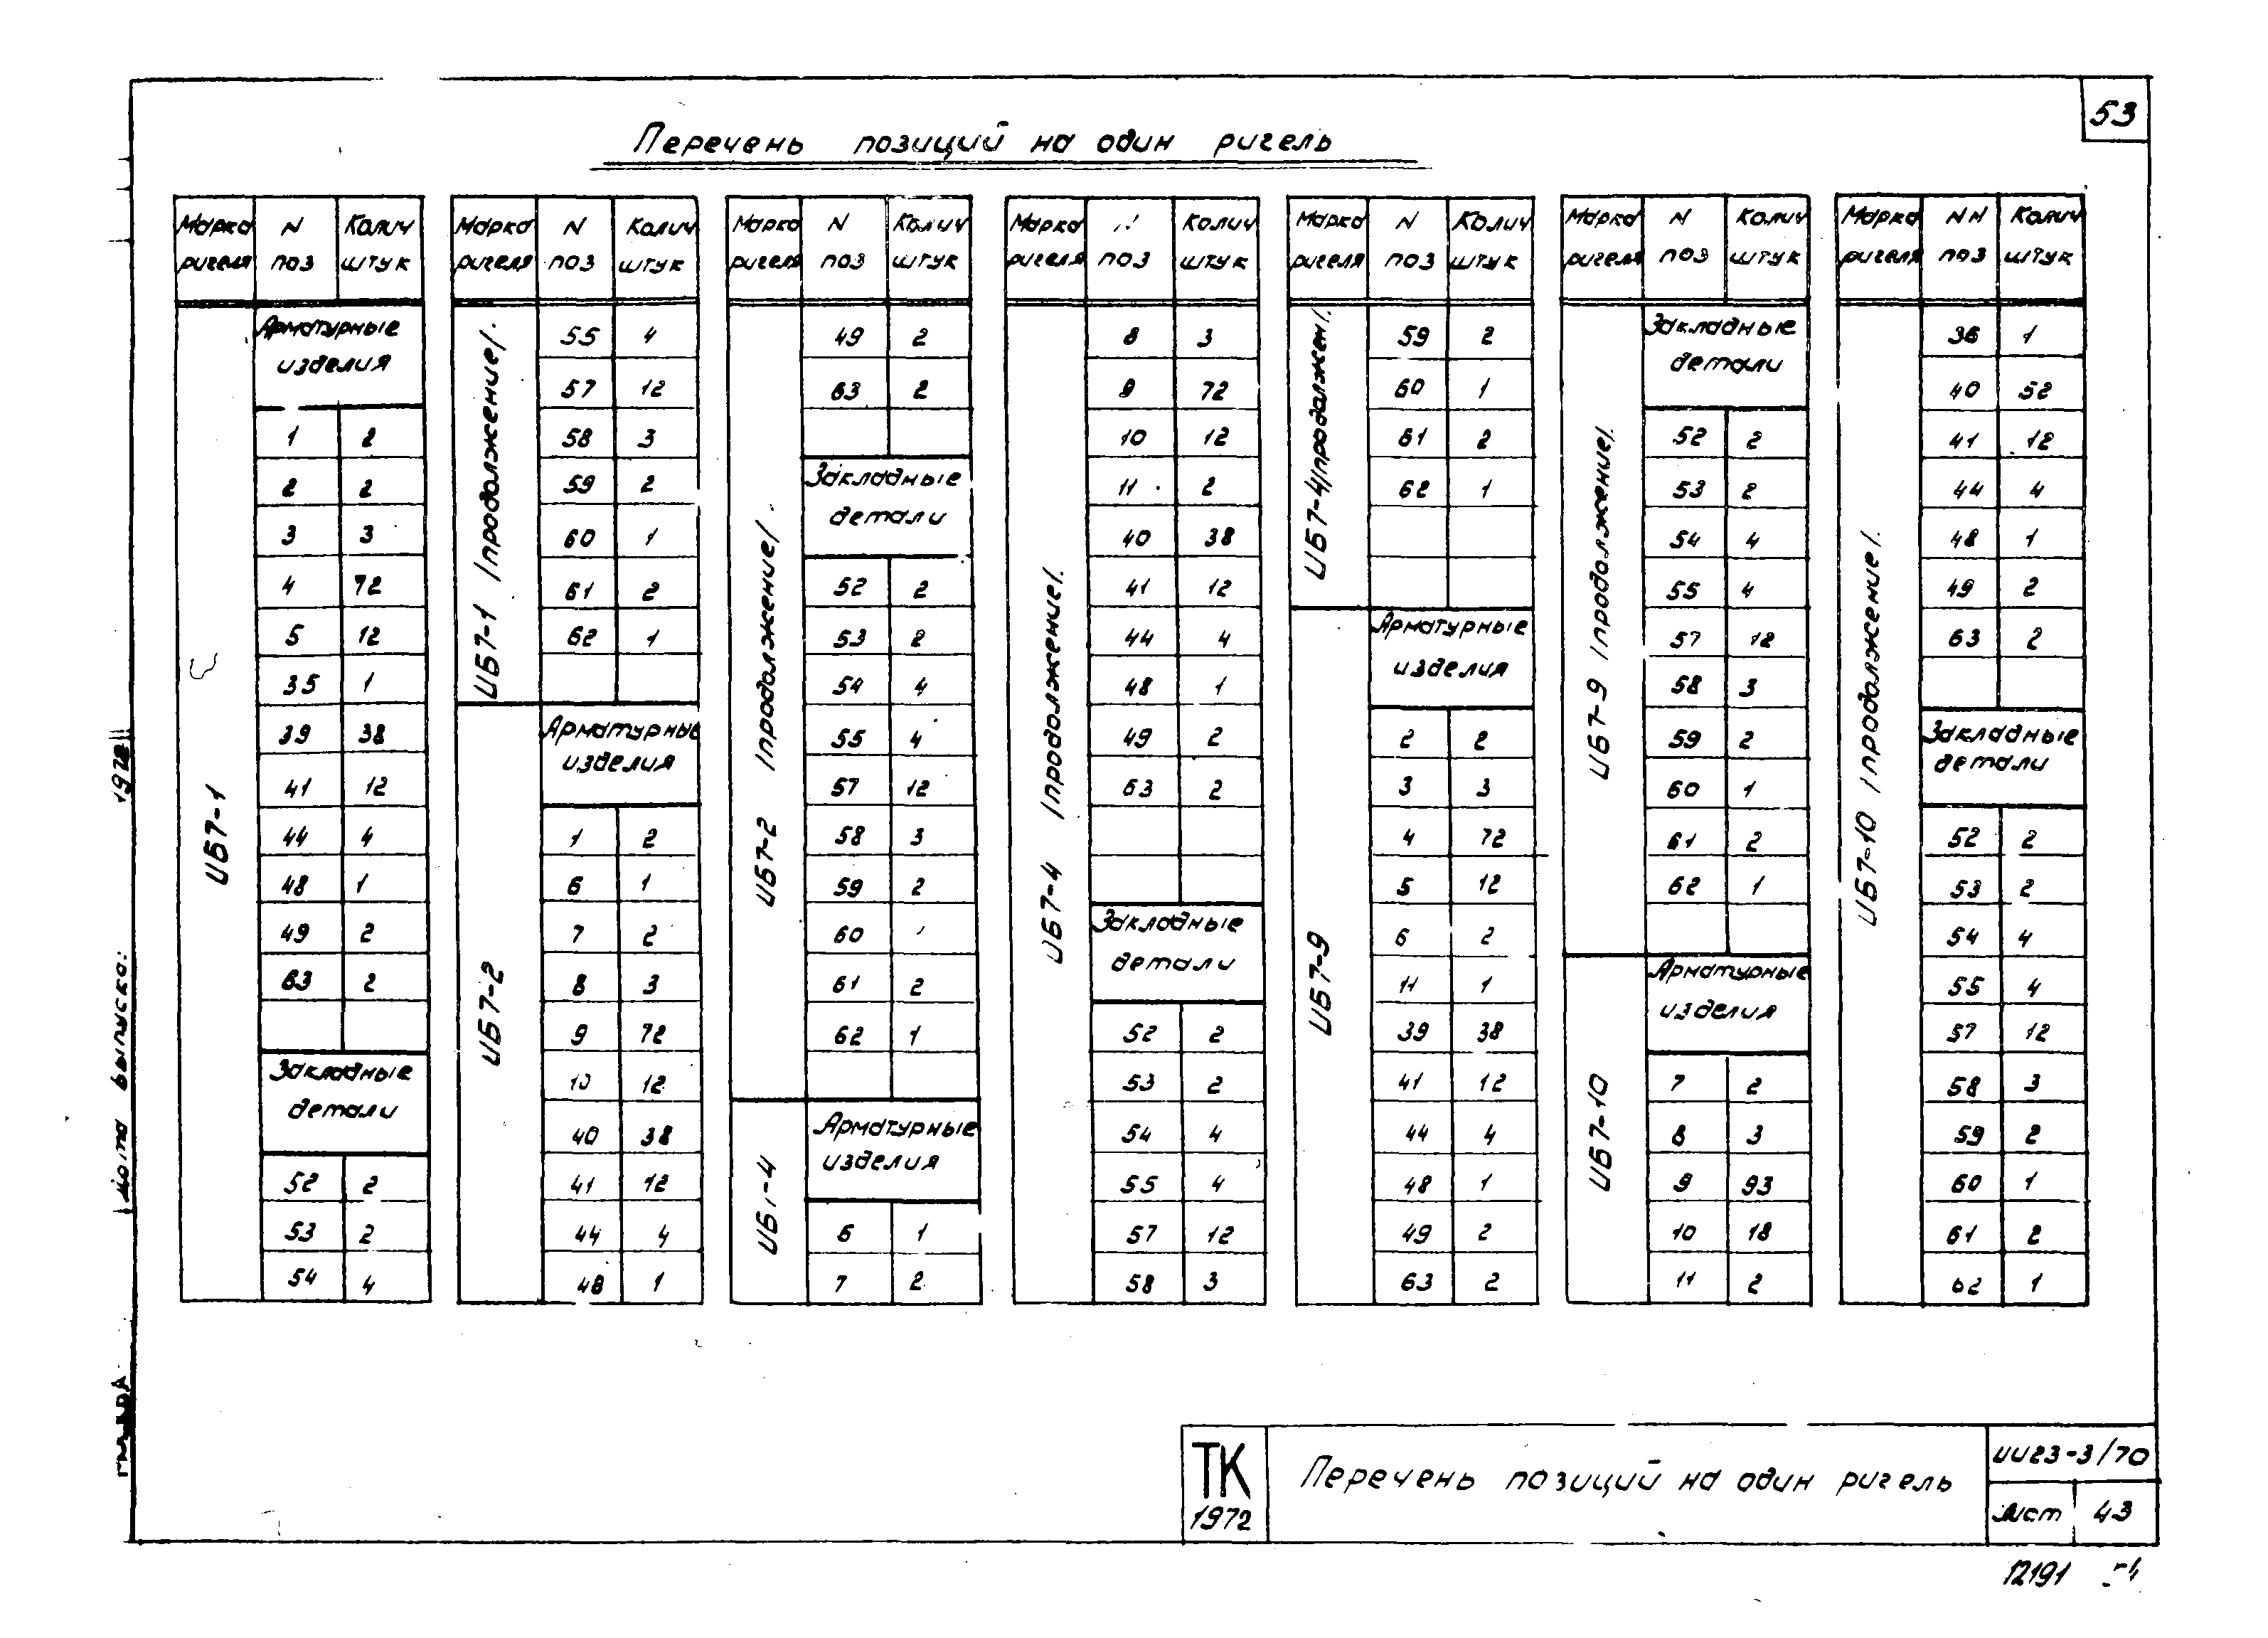 53
Перечень позиций на один ригель
Марка ригеля N поз Колич штук
ИБ7-1
Арматурные
изделия
1 2
2 2
3 3
4 72
5 12
35 1
39 38
41 12
44 4
48 1
49 2
63 2
Закладные
детали
52 2
53 2
54 4
Марка ригеля N поз Колич штук
ИБ7-1 /продолжение/.
55 4
57 12
58 3
59 2
60 1
61 2
62 1
ИБ7-2
Арматурные
изделия
1 2
6 1
7 2
8 3
9 72
10 12
40 38
41 12
44 4
48 1
Марка ригеля N поз Колич штук
ИБ7-2 /продолжение/.
49 2
63 2
Закладные
детали
52 2
53 2
54 4
55 4
57 12
58 3
59 2
60
61 2
62 1
ИБ7-4
Арматурные
изделия
6 1
7 2
Марка ригеля поз Колич штук
ИБ7-4 /продолжение/.
8 3
9 72
10 12
11 2
40 38
41 12
44 4
48 1
49 2
63 2
Закладные
детали
52 2
53 2
54 4
55 4
57 12
58 3
Марка ригеля N поз Колич штук
ИБ7-4 /продолжен/.
59 2
60 1
61 2
62 1
ИБ7-9
Арматурные
изделия
2 2
3 3
4 72
5 12
6 2
11 1
39 38
41 12
44 4
48 1
49 2
63 2
Марка ригеля N поз Колич штук
ИБ7-9 /продолжение/.
Закладные
детали
52 2
53 2
54 4
55 4
57 12
58 3
59 2
60 1
61 2
62 1
ИБ7-10
Арматурные
изделия
7 2
8 3
9 93
10 18
11 2
Марка ригеля NN поз Колич штук
ИБ7-10 /продолжение/.
36 1
40 52
41 12
44 4
48 1
49 2
63 2
Закладные
детали
52 2
53 2
54 4
55 4
57 12
58 3
59 2
60 1
61 2
62 1
выпуска:
ТК
1972
Перечень позиций на один ригель
ИИ23-3/70
лист 43
12191